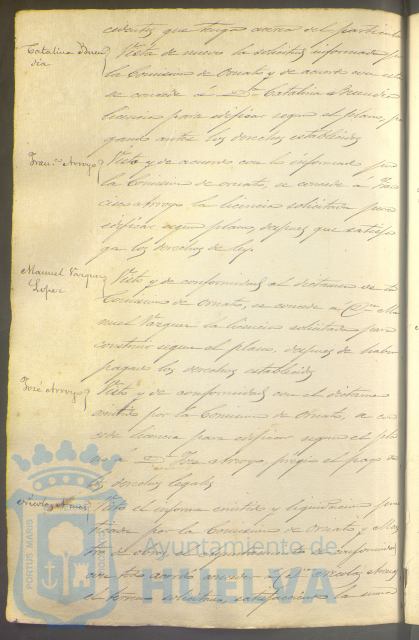 cedentes que tenga acerca del particular
Catalina Buen
dia
Vista de nuevo la solicitud informada por
la Comision de Ornato y de acuerdo con esta
se concede á Dª Catalina Buendia
licencia para edificar segun el plano, pa
gando antes los derechos establecidos
Fran.co Arroyo
Visto y de acuerdo con lo informado por
la Comision de ornato, se concede á Fran
cisco Arroyo la licencia solicitada para
edificar segun plano, despues que satisfa
ga los derechos de ley.
Manuel Vazquez
Lopez
Visto y de conformidad al dictamen de la
Comision de Ornato, se concede á Dn Ma
nuel Vazquez la licencia solicitada para
construir segun el plano, despues de haber
pagado los derechos establecidos
José Arroyo
Visto y de conformidad con el dictamen
emitido por la Comision de Ornato, se con
cede licencia para edificar segun el pla
no á Dn José Arroyo, previo el pago de
los derechos legales
Nicolas
Visto el informe emitido y liquidacion prac
ticada por la Comision de Ornato y Maes
tro de obras, el Ayuntamiento de conformidad
con todo acordó conceder á Dn Nicolas
el terreno solicitado, satisfaciendo la suma
PORTUS MARIS
Ayuntamiento de
HUELVA